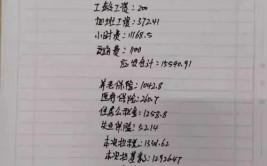 工龄工资: 200
加班工资: 572.41
小时费: 1168.5
夜班费: 900
应发合计: 15590.91
养老保险: 1042.8
医疗保险: 260.7
住房公积金: 1258.8
失业保险: 52.14
本次扣税: 1358.62
本次扣基数: 12926.47